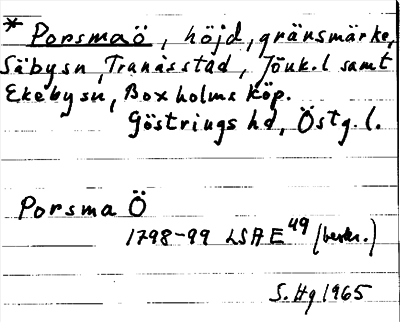 * Porsmaö, höjd, gränsmärke,
Säbysn, Tranåsstad, Jönk.l samt
Ekebysn, Boxholms köp.
Göstrings hd, Östg.l.
Porsma Ö
1798-99 LSA E49 (beskr.)
S. Hg 1965